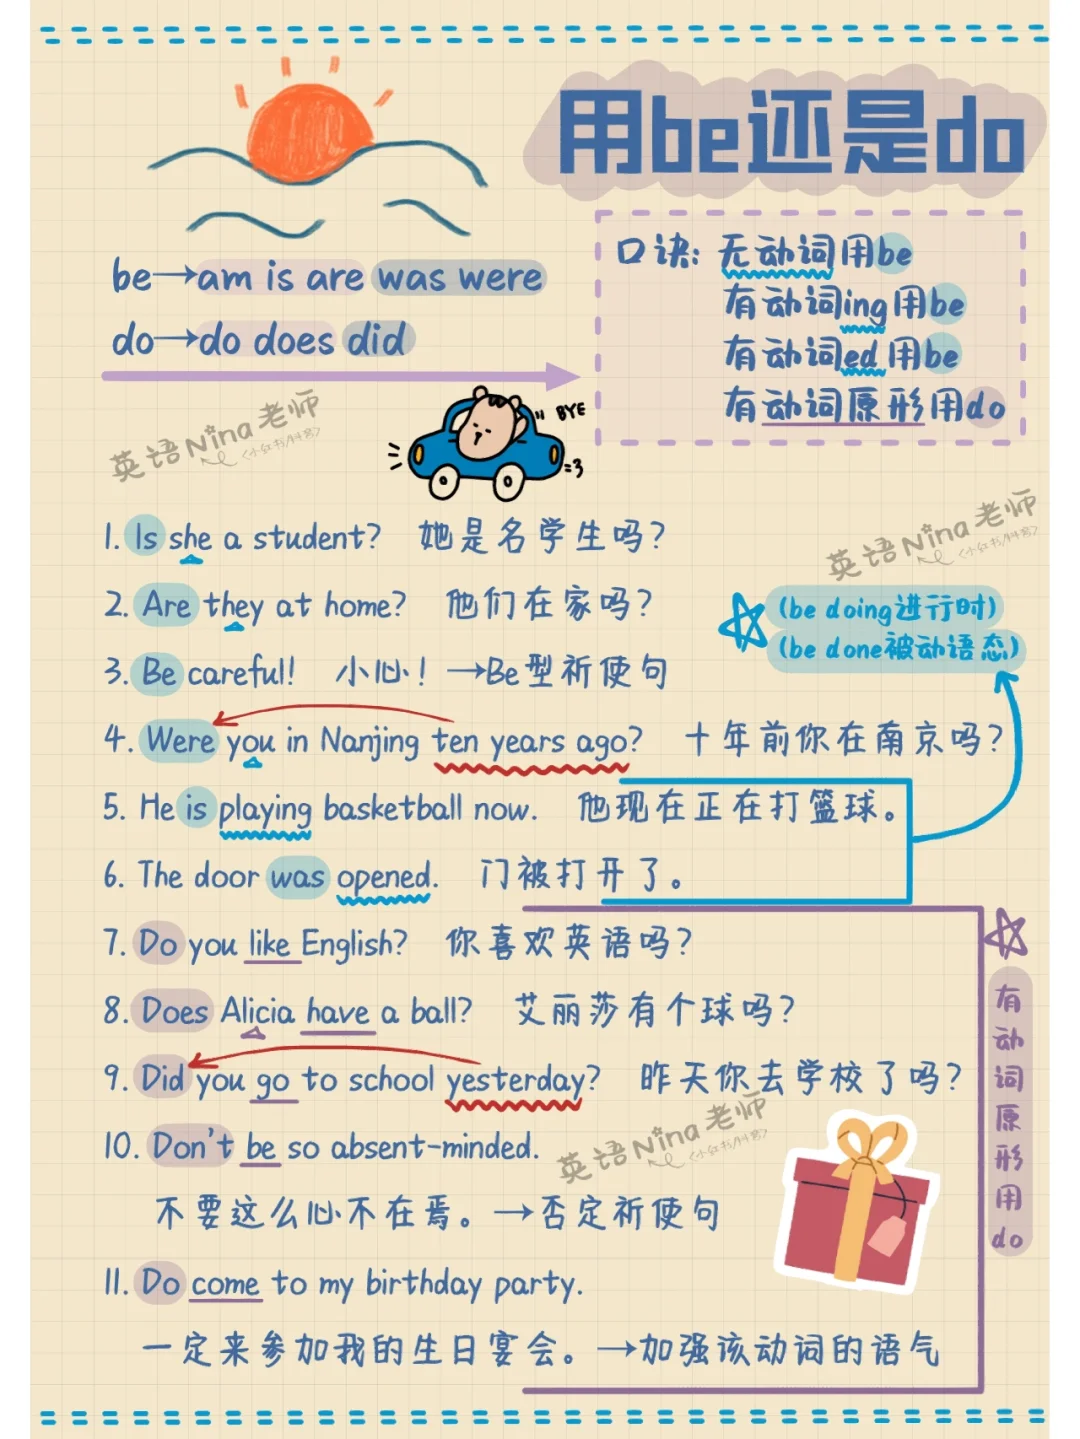 用be还是do
be→am is are was were
do→do does did
口诀: 无动词用be
有动词ing用be
有动词ed用be
有动词原形用do
BYE
=3
英语Nina老师
<小红书/抖音>
1. Is she a student? 她是名学生吗?
英语Nina老师
<小红书/抖音>
2. Are they at home? 他们在家吗?
(be doing进行时)
(be done被动语态)
3. Be careful! 小心! →Be型祈使句
4. Were you in Nanjing ten years ago? 十年前你在南京吗?
5. He is playing basketball now. 他现在正在打篮球。
6. The door was opened. 门被打开了。
7. Do you like English? 你喜欢英语吗?
8. Does Alicia have a ball? 艾丽莎有个球吗?
9. Did you go to school yesterday? 昨天你去学校了吗?
有动词原形用do
英语Nina老师
<小红书/抖音>
10. Don't be so absent-minded.
不要这么心不在焉。→否定祈使句
11. Do come to my birthday party.
一定来参加我的生日宴会。→加强该动词的语气